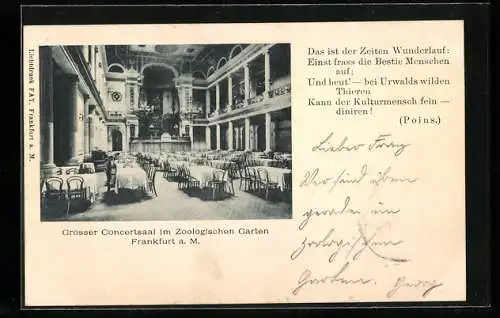 Das ist der Zeiten Wunderlauf:
Einst frass die Bestie Menschen
auf;
Und heut' — bei Urwalds wilden
Thieren
Kann der Kulturmensch fein —
diniren!
(Poins.)
Lichtdruck FAY, Frankfurt a. M.
Grosser Concertsaal im Zoologischen Garten
Frankfurt a. M.
Lieber Franz
Wir sind eben
gerade im
zoologischen
Garten. Georg